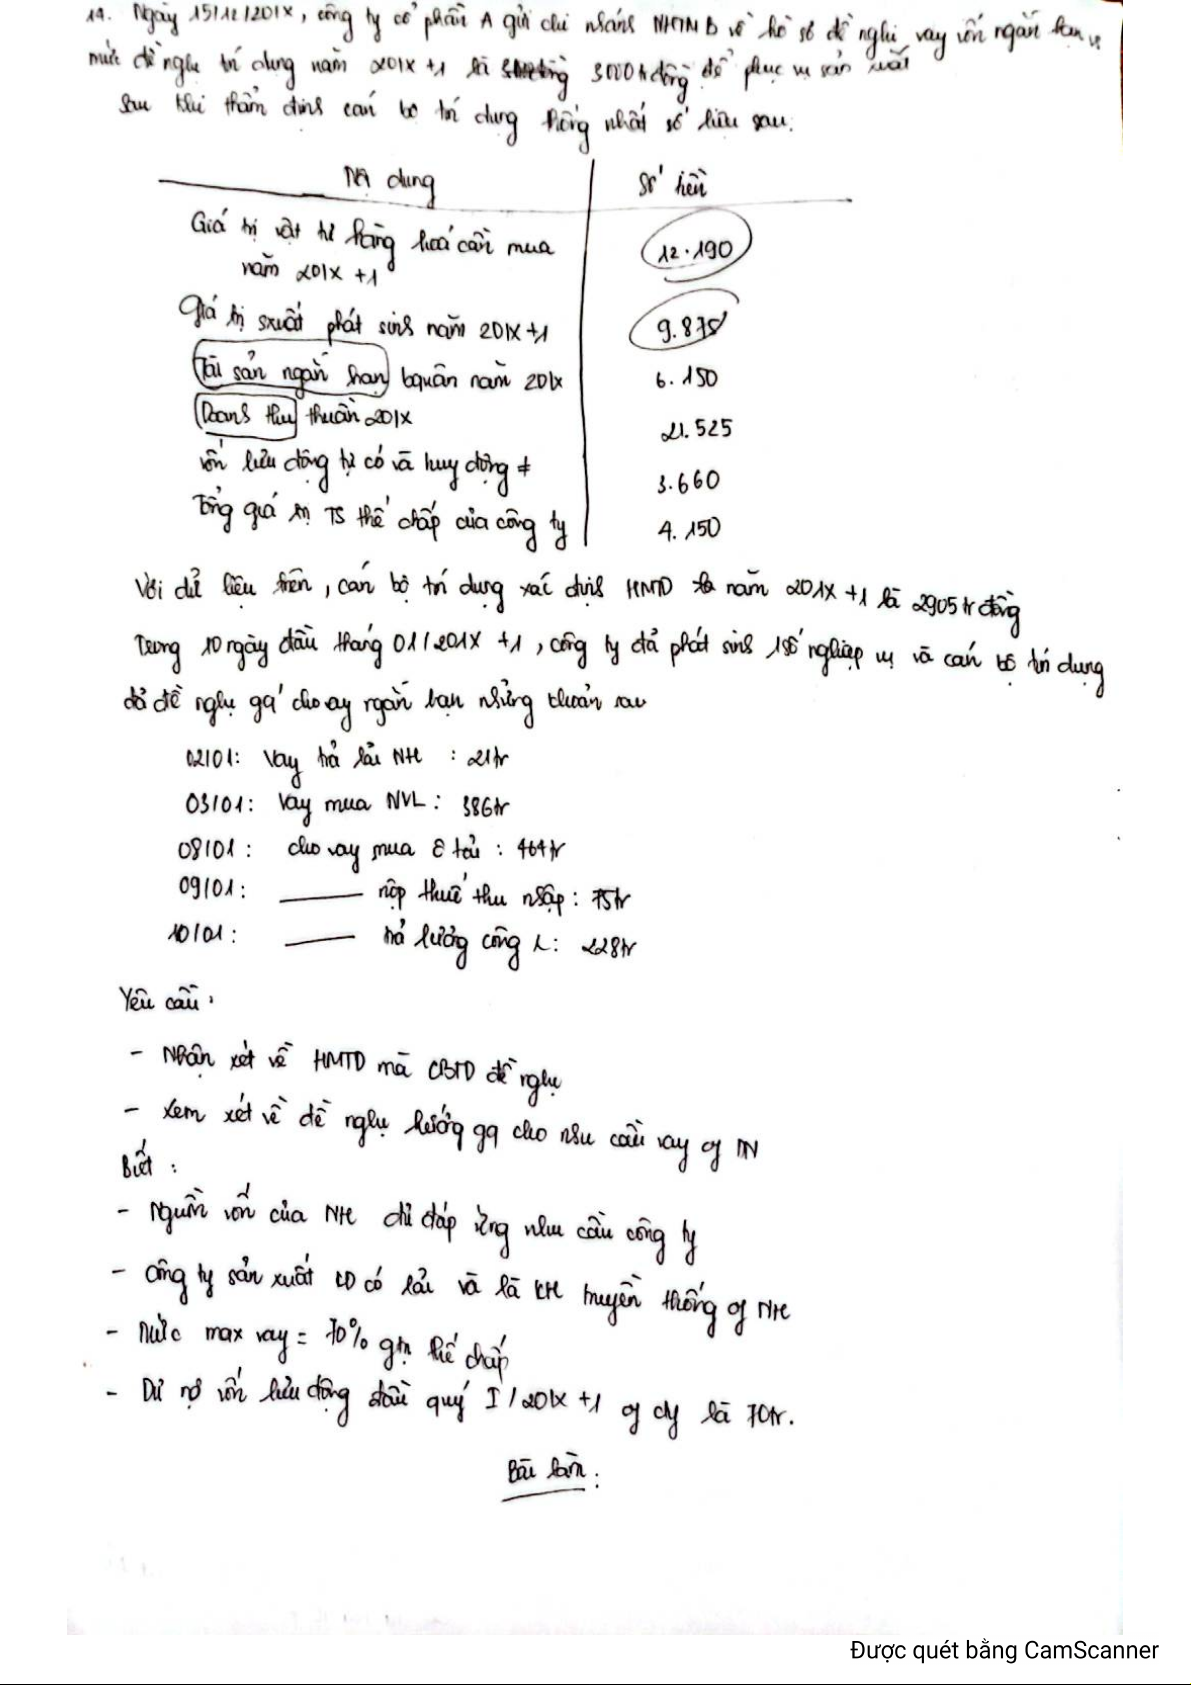 14. Ngày 15/12/201x, công ty cổ phần A gửi chi nhánh NHTM B về hồ sơ đề nghị vay vốn ngắn hạn,
mức đề nghị tín dụng năm 201x +1 là 3000trđồng để phục vụ sản xuất
Sau khi thẩm định cán bộ tín dụng thống nhất số liệu sau:
Nội dung
Số tiền
Giá trị vật tư hàng hoá cần mua
năm 201x +1
12.190
Giá trị sxuất phát sinh năm 201x+1
9.875
Tài sản ngắn hạn bquân năm 201x
6.150
Doanh thu thuần 201x
21.525
vốn lưu động tự có và huy động ≠
3.660
Tổng giá trị TS thế chấp của công ty
4.150
Với dữ liệu trên, cán bộ tín dụng xác định HMTD năm 201x +1 là 2905trđồng
Trong 10 ngày đầu tháng 01/201x +1, công ty đã phát sinh 1số nghiệp vụ và cán bộ tín dụng
đã đề nghị gq' cho vay ngắn hạn những khoản sau
02/01: Vay trả lãi NH : 21tr
03/01: Vay mua NVL: 386tr
08/01: cho vay mua ô tải : 464tr
09/01: ——— nộp thuế thu nhập: 75tr
10/01: ——— trả lương công L: 228tr
Yêu cầu:
- Nhận xét về HMTD mà CBTD đề nghị
- Xem xét về đề nghị hướng gq cho nhu cầu vay of DN
Biết :
- Nguồn vốn của NH chỉ đáp ứng nhu cầu công ty
- Công ty sản xuất KD có lãi và là KH truyền thống of NH
- Mức max vay = 70% gtrị thế chấp
- Dư nợ vốn lưu động đầu quý I/201x +1 of cty là 70tr.
Bài làm:
Được quét bằng CamScanner